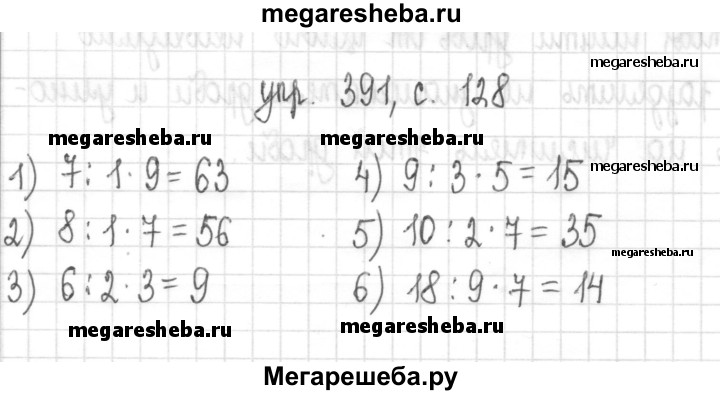 megaresheba.ru
megaresheba.ru
упр. 391, с. 128
megaresheba.ru megaresheba.ru
1) 7 : 1 · 9 = 63
4) 9 : 3 · 5 = 15 megaresheba.ru
2) 8 : 1 · 7 = 56
5) 10 : 2 · 7 = 35
megaresheba.ru
3) 6 : 2 · 3 = 9
6) 18 : 9 · 7 = 14
megaresheba.ru megaresheba.ru
Мегарешеба.ру